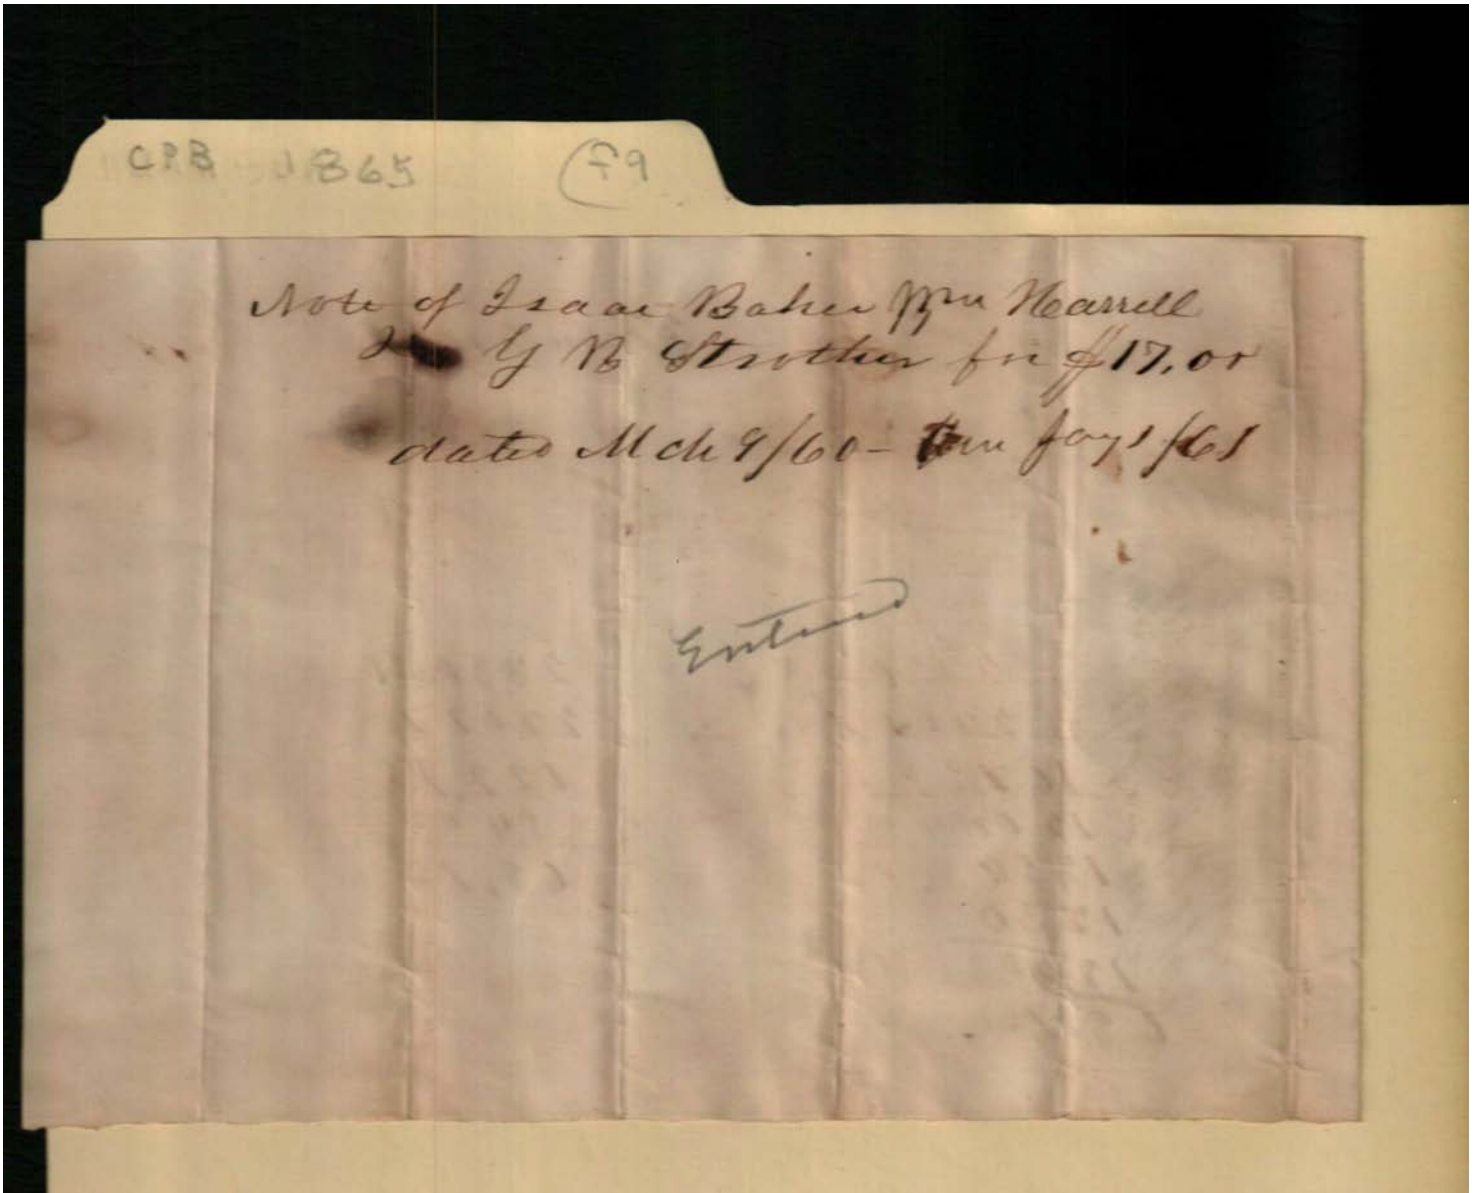 CPB 1865 f9
Note of Isaac Baker Wm Harrell
G B Strother for $17.00
dated Mch 9/60 - Due Jany 1/61
Entered